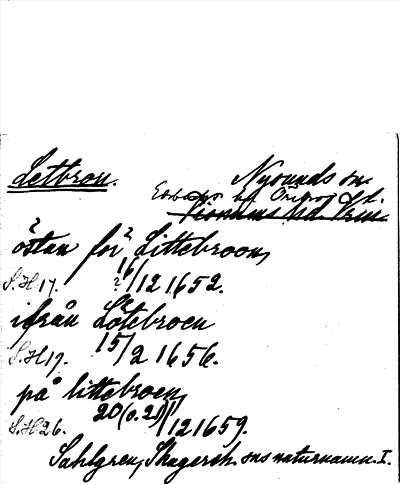 Letbron. Nysunds sn.
Edsbergs hd Örebro l.
östan för Littebroon,
S.H.17. 16/12 1652.
ifrån Lötebroen
S.H.19. 15/2 1656.
på littebroen,
S.H.26. 20 (o. 21)/12 1659.
Sahlgren, Skagersh. sns naturnamn. I.